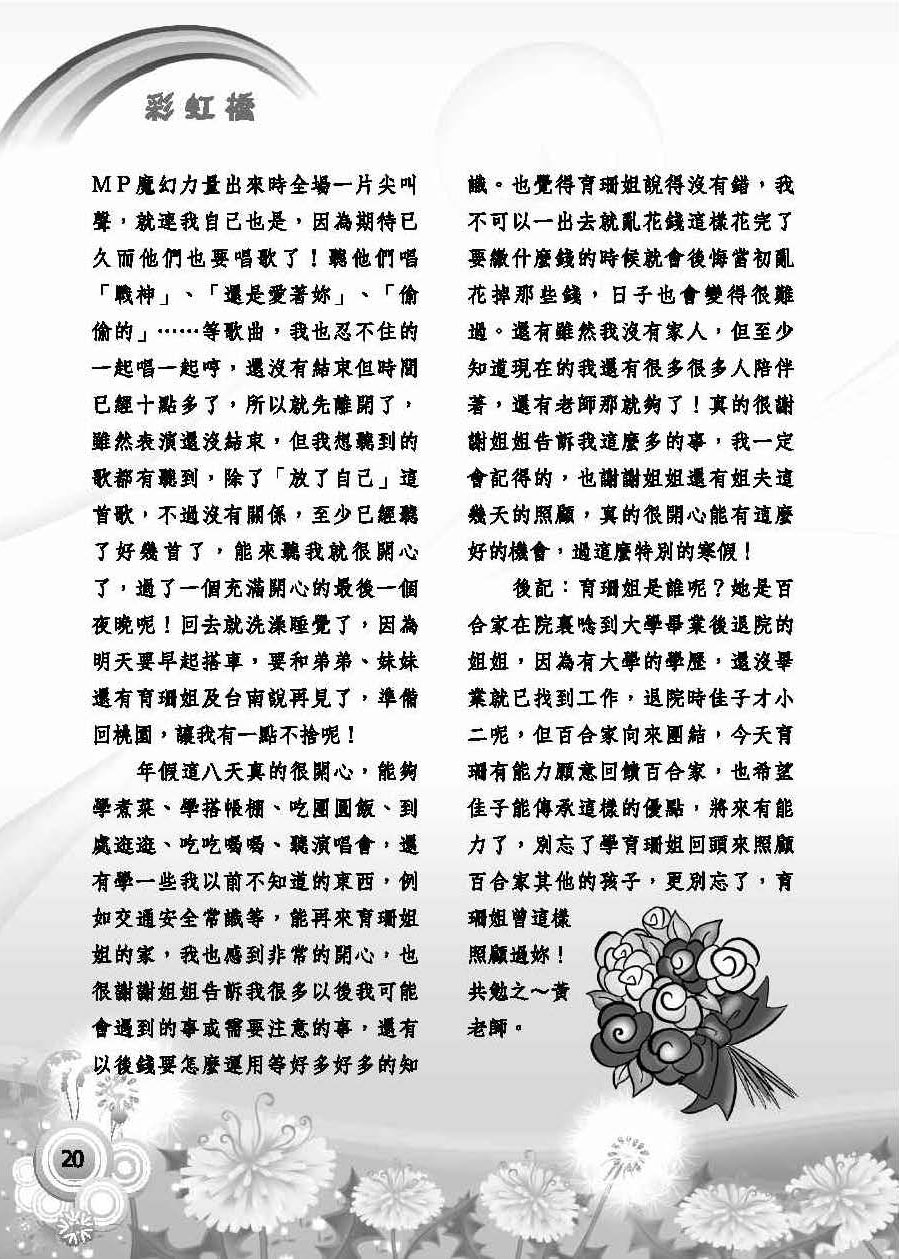 彩虹橋
MP魔幻力量出來時全場一片尖叫
聲，就連我自己也是，因為期待已
久而他們也要唱歌了！聽他們唱
「戰神」、「還是愛著妳」、「偷
偷的」……等歌曲，我也忍不住的
一起唱一起哼，還沒有結束但時間
已經十點多了，所以就先離開了，
雖然表演還沒結束，但我想聽到的
歌都有聽到，除了「放了自己」這
首歌，不過沒有關係，至少已經聽
了好幾首了，能來聽我就很開心
了，過了一個充滿開心的最後一個
夜晚呢！回去就洗澡睡覺了，因為
明天要早起搭車，要和弟弟、妹妹
還有育珊姐及台南說再見了，準備
回桃園，讓我有一點不捨呢！
年假這八天真的很開心，能夠
學煮菜、學搭帳棚、吃團圓飯、到
處逛逛、吃吃喝喝、聽演唱會，還
有學一些我以前不知道的東西，例
如交通安全常識等，能再來育珊姐
姐的家，我也感到非常的開心，也
很謝謝姐姐告訴我很多以後我可能
會遇到的事或需要注意的事，還有
以後錢要怎麼運用等好多好多的知
識。也覺得育珊姐說得沒有錯，我
不可以一出去就亂花錢這樣花完了
要繳什麼錢的時候就會後悔當初亂
花掉那些錢，日子也會變得很難
過。還有雖然我沒有家人，但至少
知道現在的我還有很多很多人陪伴
著，還有老師那就夠了！真的很謝
謝姐姐告訴我這麼多的事，我一定
會記得的，也謝謝姐姐還有姐夫這
幾天的照顧，真的很開心能有這麼
好的機會，過這麼特別的寒假！
後記：育珊姐是誰呢？她是百
合家在院裏唸到大學畢業後退院的
姐姐，因為有大學的學歷，還沒畢
業就已找到工作，退院時佳子才小
二呢，但百合家向來團結，今天育
珊有能力願意回饋百合家，也希望
佳子能傳承這樣的優點，將來有能
力了，別忘了學育珊姐回頭來照顧
百合家其他的孩子，更別忘了，育
珊姐曾這樣
照顧過妳！
共勉之～黃
老師。
20